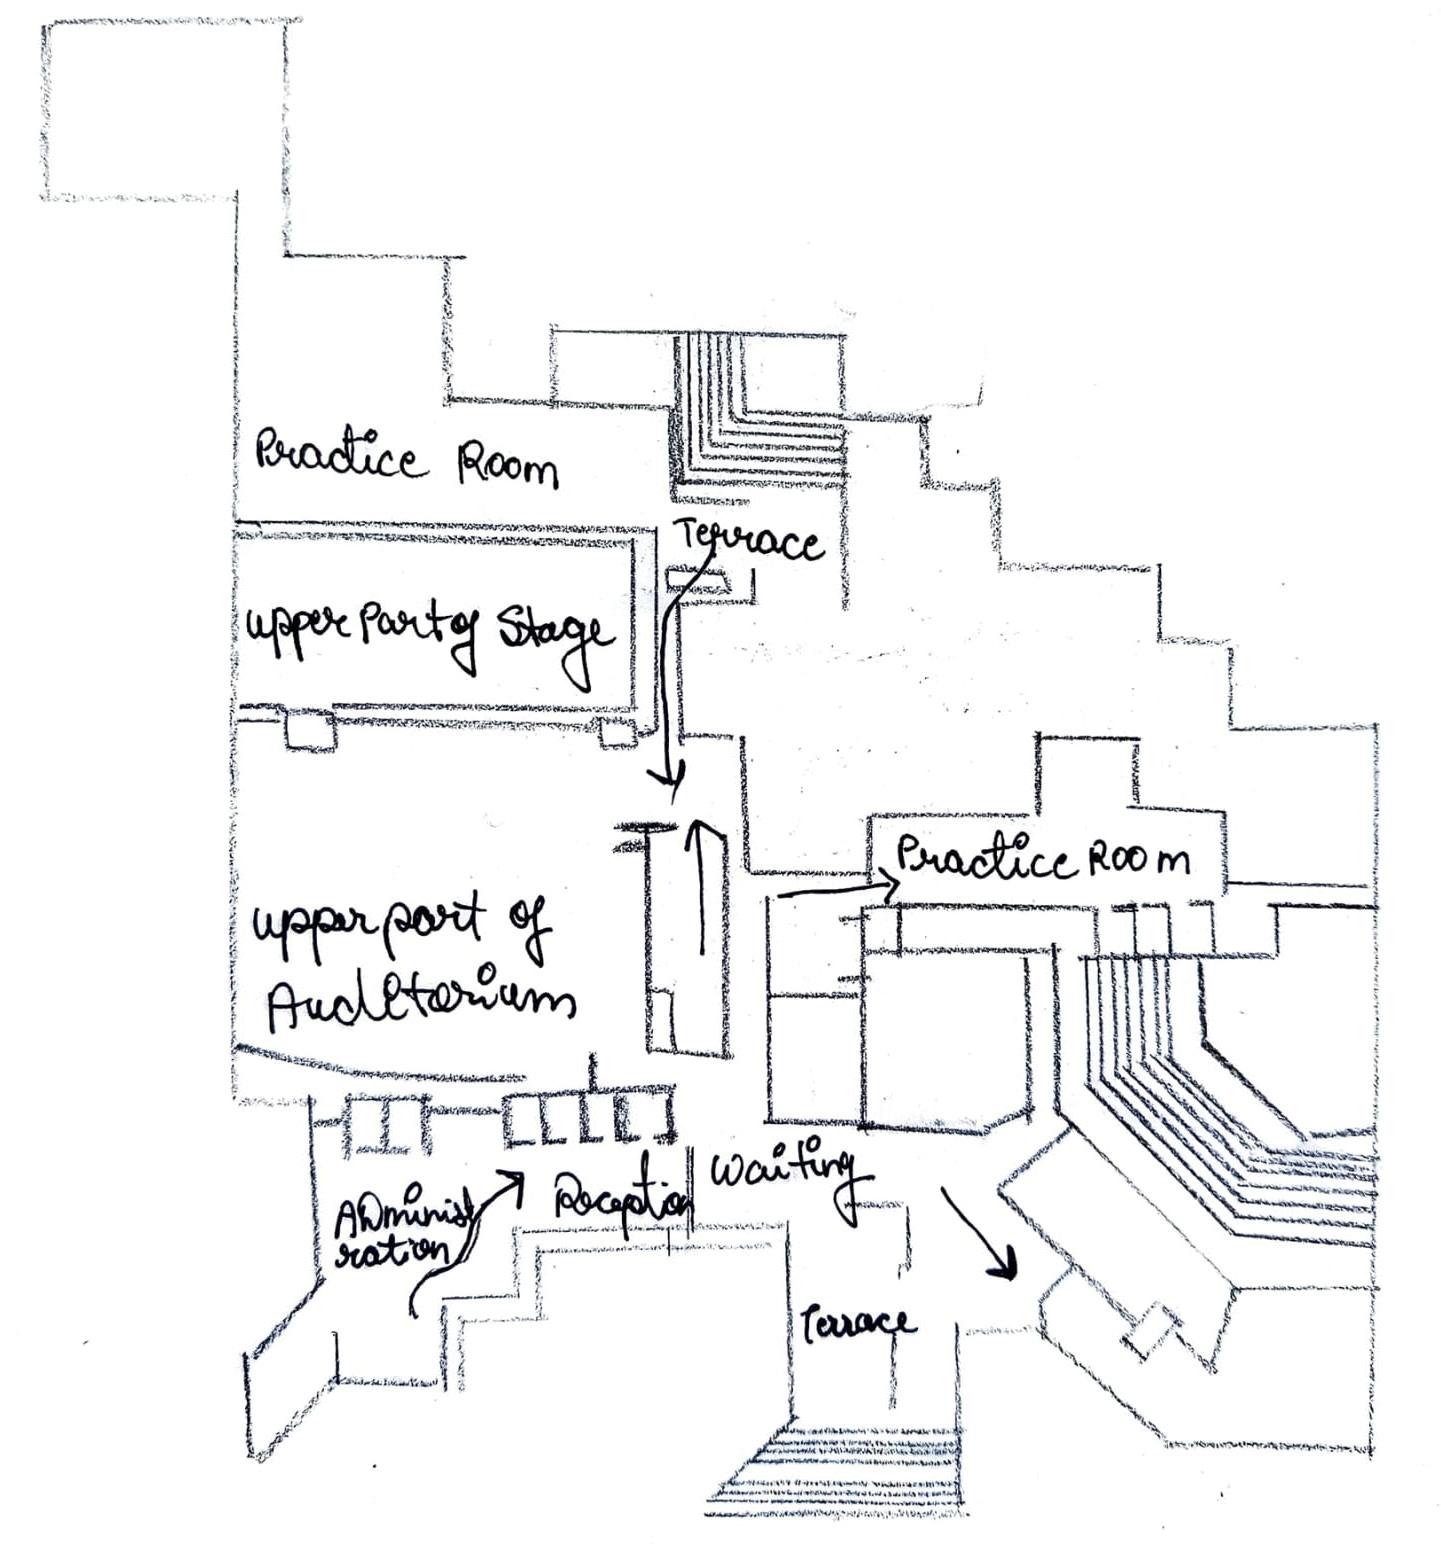 Practice Room
Terrace
upper Part of Stage
Practice Room
upper part of
Auditorium
Waiting
Reception
ADminist
ration
Terrace